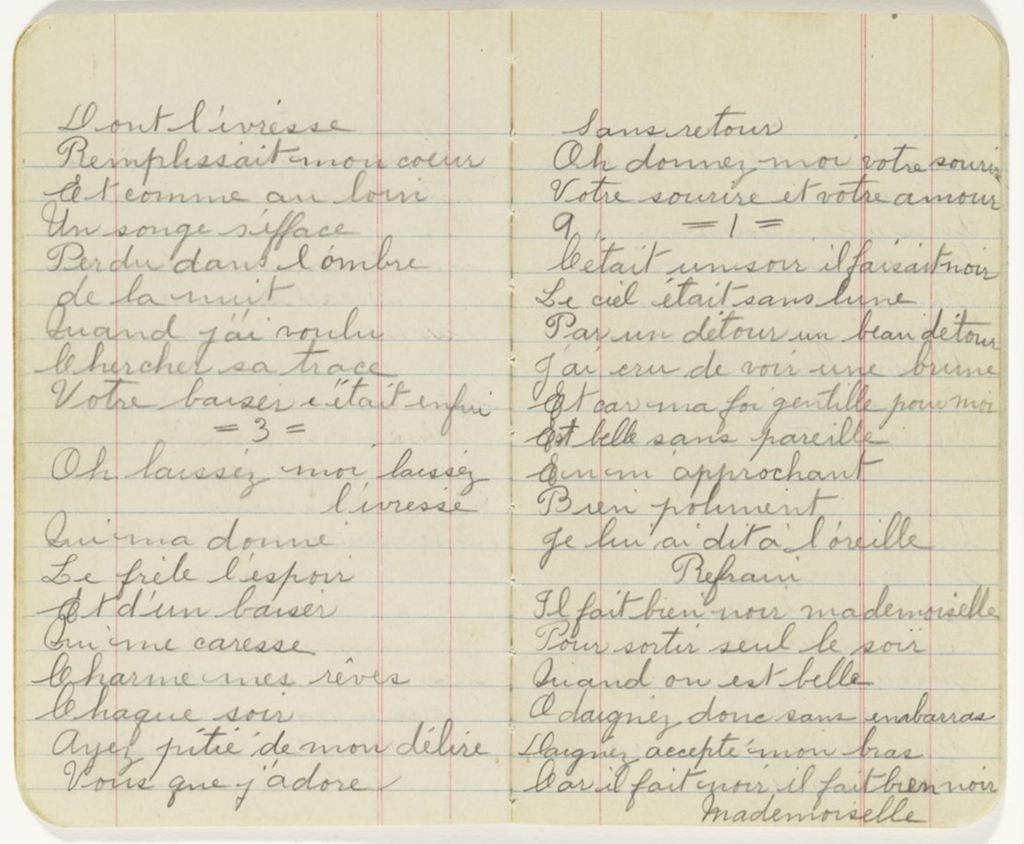 Dont l'ivrésse
Remplissait mon coeur
Et comme au loin
Un songe s'éfface
Perdu dans l'ómbre
de la nuit
Quand j'ai voulu
Chercher sa trace
Votre baiser c'était enfui
= 3 =
Oh laisséz moi laisséz
l'ivresse
Qui ma donné
Le frèle l'éspoir
Et d'un baisér
Qui me caresse
Charme mes rêves
Chaque soir
Ayez pitié de mon délire
Vous que j'adore
Sans retour
Oh donnez moi votre sourire
Votre sourire et votre amour
9 = 1 =
C'était un soir il faisait noir
Le ciel était sans lune
Par un détour un beau détour
J'ai cru de voir une brune
Et car ma foi gentille pour moi
Est belle sans pareille
En m'approchant
Bien poliment
Je lui ai dit à l'óreille
Refrain
Il fait bien noir mademoiselle
Pour sortir seul le soir
Quand on est belle
O daignez donc sans embarras
Daignez accepté mon bras
Car il fait noir il fait bien noir
Mademoiselle